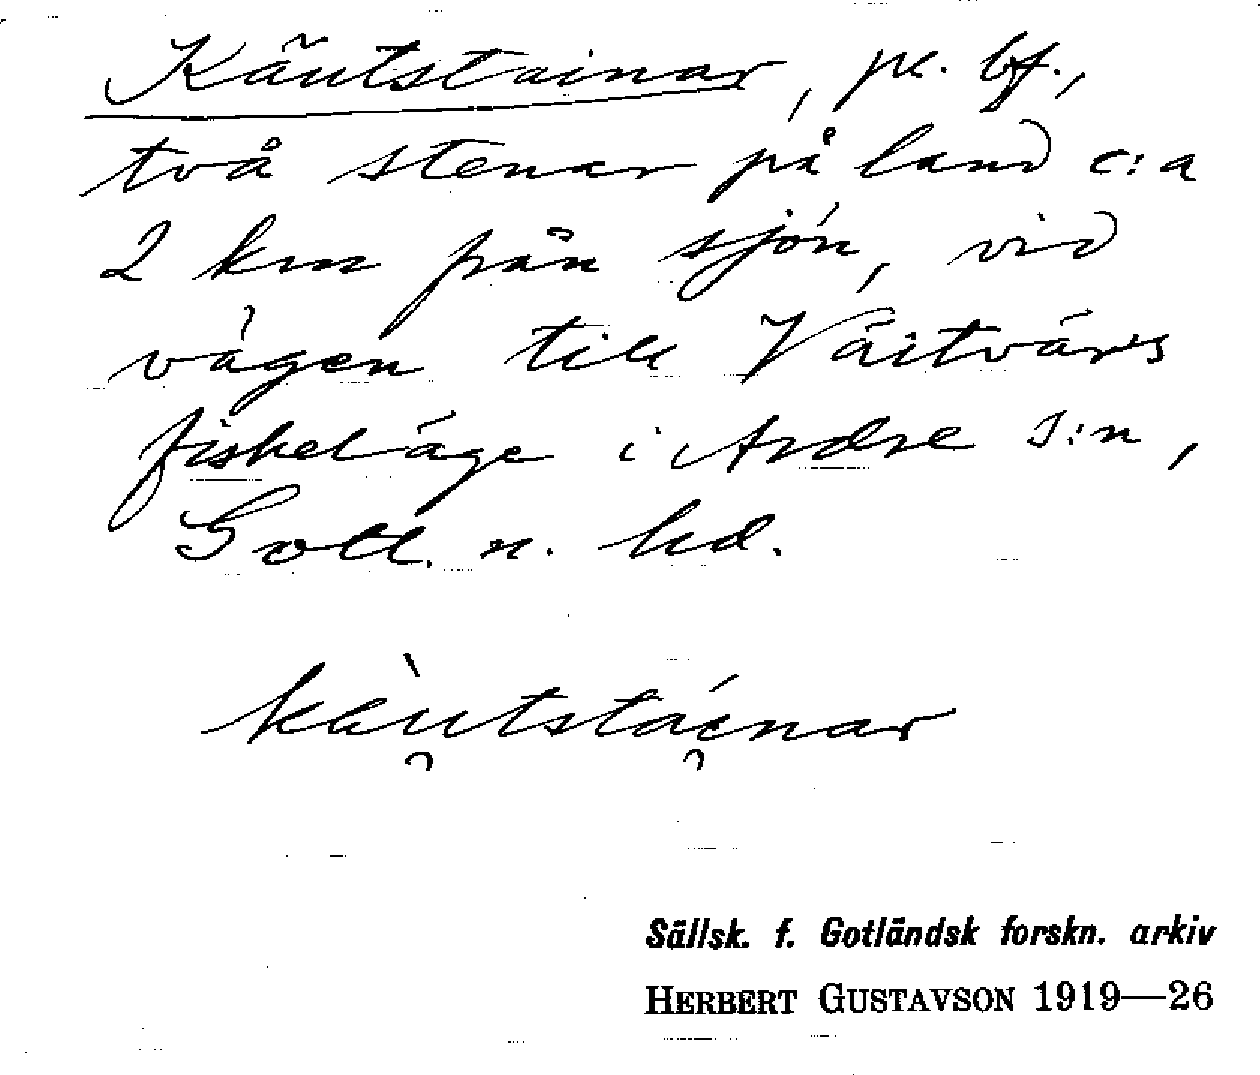 Käutstainar, pl. bf.,
två stenar på land c:a
2 km från sjön, vid
vägen till Väitvärs
fiskeläge i Ardre s:n,
Gotl. n. hd.
käu̯tstái̯nar
Sällsk. f. Gotländsk forskn. arkiv
HERBERT GUSTAVSON 1919—26